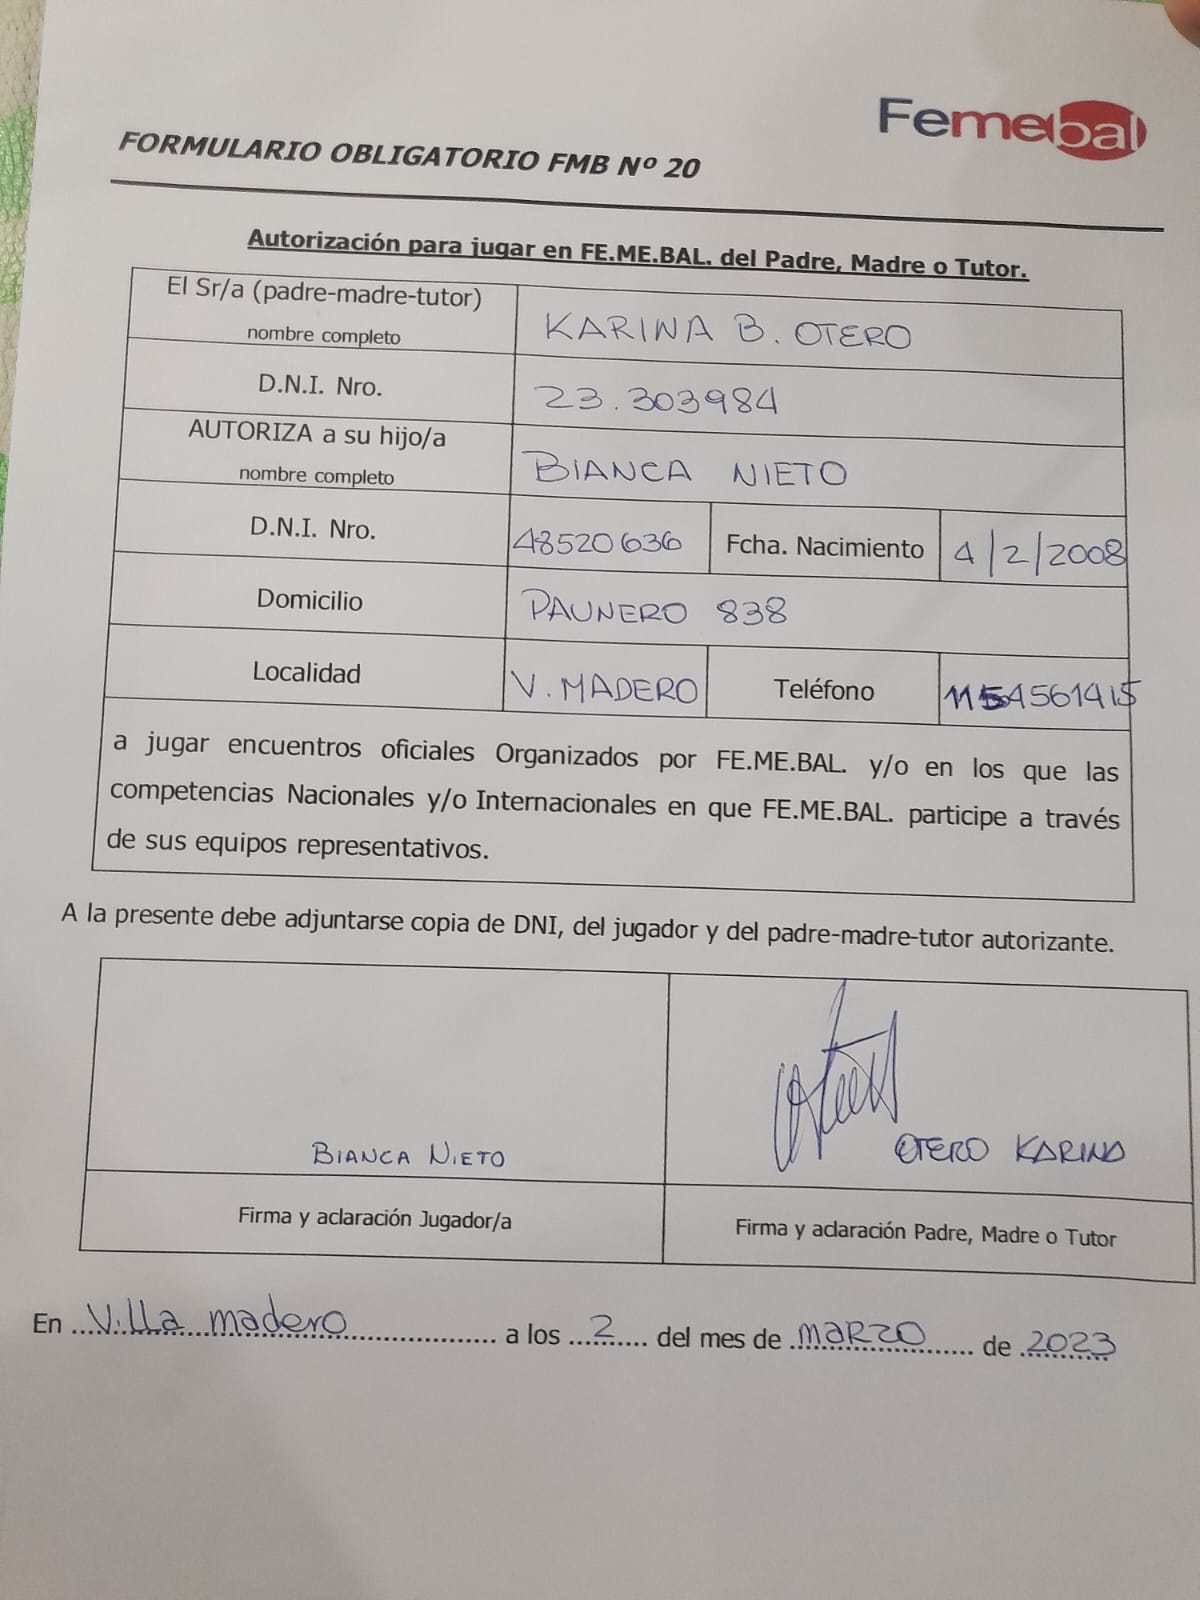 Femebal
FORMULARIO OBLIGATORIO FMB Nº 20
Autorización para jugar en FE.ME.BAL. del Padre, Madre o Tutor.
El Sr/a (padre-madre-tutor)
nombre completo
KARINA B. OTERO
D.N.I. Nro.
23.303984
AUTORIZA a su hijo/a
nombre completo
BIANCA NIETO
D.N.I. Nro.
48520636
Fcha. Nacimiento
4/2/2008
Domicilio
PAUNERO 838
Localidad
V. MADERO
Teléfono
1154561415
a jugar encuentros oficiales Organizados por FE.ME.BAL. y/o en los que las
competencias Nacionales y/o Internacionales en que FE.ME.BAL. participe a través
de sus equipos representativos.
A la presente debe adjuntarse copia de DNI, del jugador y del padre-madre-tutor autorizante.
BIANCA NIETO
OTERO KARINA
Firma y aclaración Jugador/a
Firma y aclaración Padre, Madre o Tutor
En Villa madero a los 2 del mes de MARZO de 2023